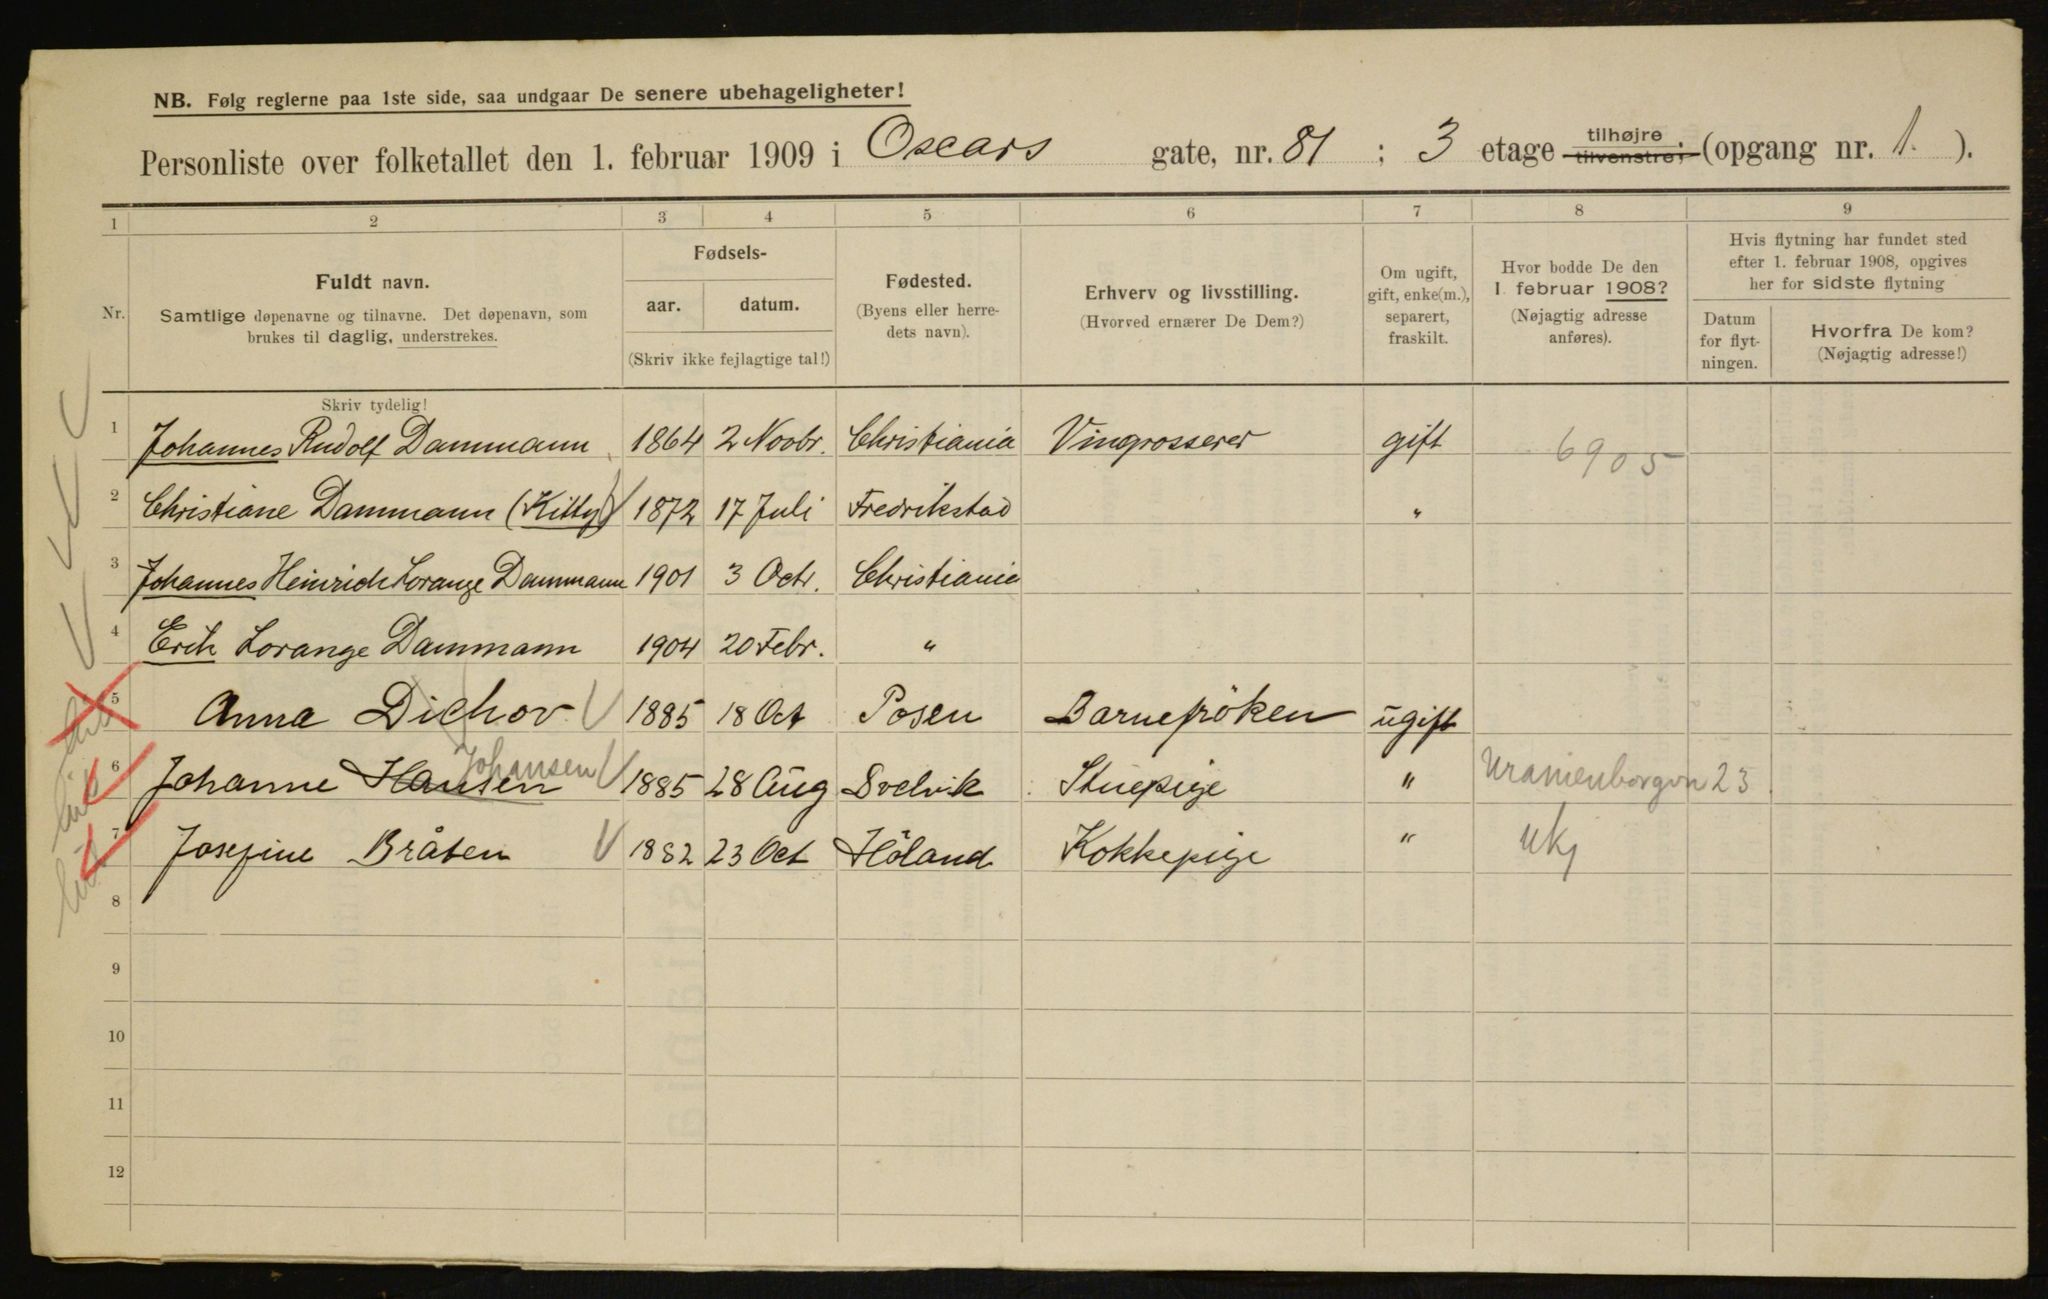 NB. Følg reglerne paa 1ste side, saa undgaar De senere ubehageligheter!
Personliste over folketallet den 1. februar 1909 i Oscars gate, nr. 81 ; 3 etage tilhøjre tilvenstre; (opgang nr. 1. ).
1 2 3 4 5 6 7 8 9
Nr.
Fuldt navn.
Samtlige døpenavne og tilnavne. Det døpenavn, som
brukes til daglig, understrekes.
Skriv tydelig!
Fødsels-
aar. datum.
(Skriv ikke fejlagtige tal!)
Fødested.
(Byens eller herre-
dets navn).
Erhverv og livsstilling.
(Hvorved ernærer De Dem?)
Om ugift,
gift, enke(m.),
separert,
fraskilt.
Hvor bodde De den
1. februar 1908?
(Nøjagtig adresse
anføres).
Hvis flytning har fundet sted
efter 1. februar 1908, opgives
her for sidste flytning
Datum
for flyt-
ningen.
Hvorfra De kom?
(Nøjagtig adresse!)
1 Johannes Rudolf Dammann 1864 2 Novbr. Christiania Vingrosserer gift 6905
2 Christiane Dammann (Kitty) 1872 17 Juli Fredrikstad "
3 Johannes Heinrich Lorange Dammann 1901 3 Octr. Christiania
4 Erik Lorange Dammann 1904 20 Febr. "
5 Anna Dichov 1885 18 Oct Posen Barnefröken ugift
6 Johanne Hansen Johansen 1885 28 Aug Svelvik Stuepige " Uranienborgvn 23
7 Josefine Bråten 1882 23 Oct Höland Kokkepige " Ukj
8
9
10
11
12